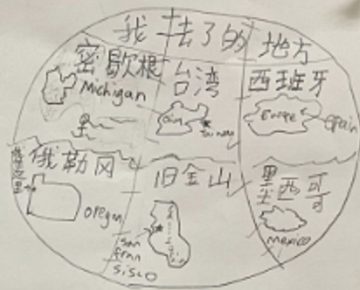 我去了的地方
密歇根
Michigan
台湾
西班牙
Europe
Spain
俄勒冈
oregon
旧金山
san
fran
sisco
墨西哥
mexico